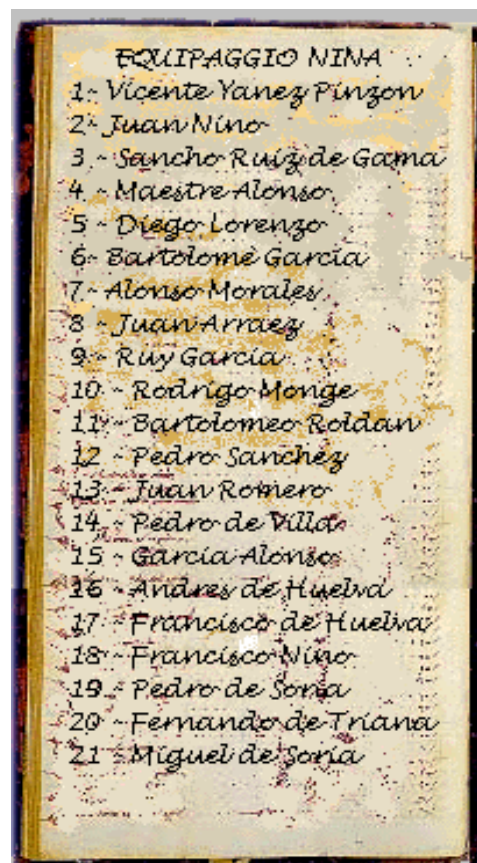 EQUIPAGGIO NINA
1~ Vicente Yanez Pinzon
2~ Juan Nino
3 ~ Sancho Ruiz de Gama
4 ~ Maestre Alonso
5 ~ Diego Lorenzo
6~ Bartolomè Garcia
7~ Alonso Morales
8 ~ Juan Arraez
9 ~ Ruy Garcia
10 ~ Rodrigo Monge
11 ~ Bartolomeo Roldan
12 ~ Pedro Sanchez
13 ~ Juan Romero
14 ~ Pedro de Villa
15 ~ Garcia Alonso
16 ~ Andres de Huelva
17 ~ Francisco de Huelva
18 ~ Francisco Nino
19 ~ Pedro de Soria
20 ~ Fernando de Triana
21 ~ Miguel de Soria